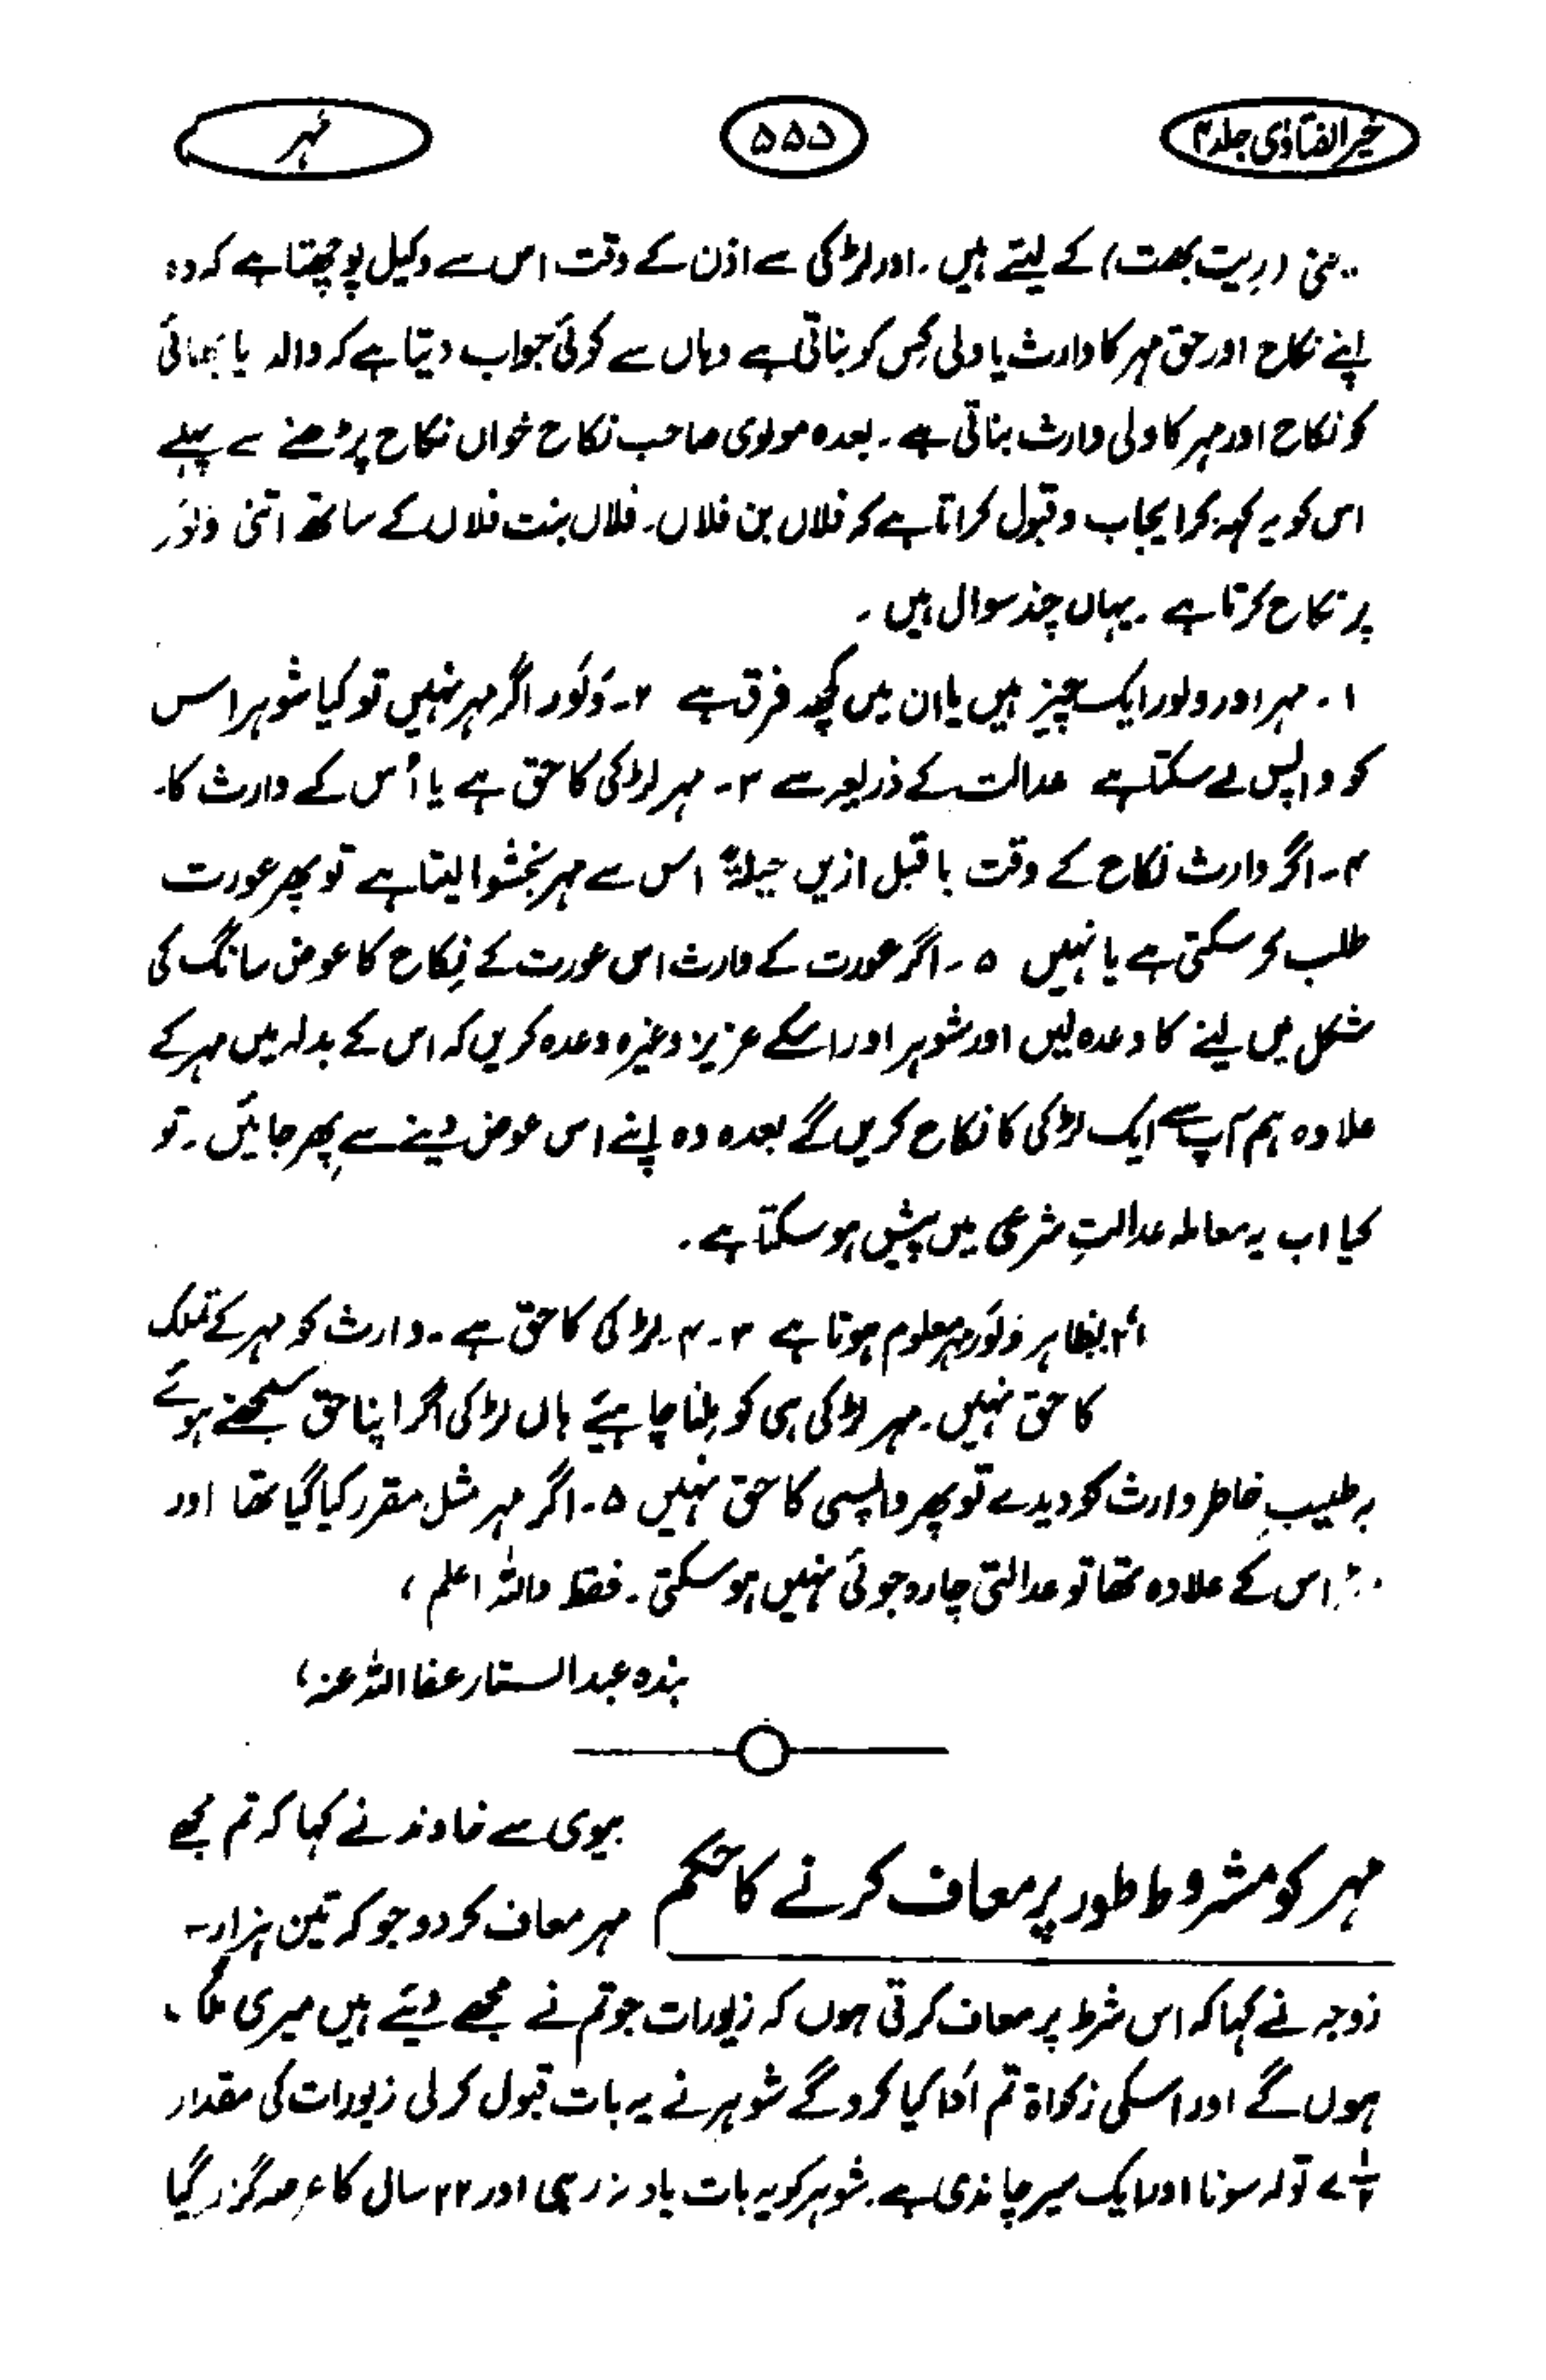 خیر الفتاوٰی جلد ۴
۵۵۵
مہر
(ریت بھت) کے لیتے ہیں۔ اور لڑکی سے اذن کے وقت اس سے وکیل پوچھتا ہے کہ وہ
اپنے نکاح اور حق مہر کا وارث یا ولی کِس کو بناتی ہے وہاں سے کوئی جواب دیتا ہے کہ والد یا بھائی
کو نکاح اور مہر کا ولی وارث بناتی ہے۔ بعدہ مولوی صاحب نکاح خواں نکاح پڑھنے سے پہلے
اس کو یہ کہہ کر ایجاب و قبول کراتا ہے کہ فلاں بن فلاں۔ فلاں بنت فلاں کے ساتھ اتنی وَلوَر
پر نکاح کرتا ہے۔ یہاں چند سوال ہیں۔
۱۔ مہر اور ولور ایک چیز ہیں یا ان میں کچھ فرق ہے ۲۔ وَلوَر اگر مہر نہیں تو کیا شوہر اس
کو واپس لے سکتا ہے عدالت کے ذریعہ سے ۳۔ مہر لڑکی کا حق ہے یا اُس کے وارث کا۔
۴۔ اگر وارث نکاح کے وقت یا قبل ازیں حیلۃً اس سے مہر بخشوا لیتا ہے تو پھر عورت
طلب کر سکتی ہے یا نہیں ۵۔ اگر عورت کے وارث اس عورت کے نِکاح کا عوض سانگ کی
شکل میں لینے کا وعدہ لیں اور شوہر اور اسکے عزیز وغیرہ وعدہ کریں کہ اس کے بدلہ میں مہر کے
علاوہ ہم آپ سے ایک لڑکی کا نکاح کریں گے بعدہ وہ اپنے اس عوض دینے سے پھر جائیں۔ تو
کیا اب یہ معاملہ عدالتِ شرعی میں پیش ہو سکتا ہے۔
بظاہر وَلوَر مہر معلوم ہوتا ہے ۳۔ ۴۔ لڑکی کا حق ہے۔ وارث کو مہر کے تملک
کا حق نہیں۔ مہر لڑکی ہی کو مِلنا چاہیئے ہاں لڑکی اگر اپنا حق سمجھتے ہوئے
بہ طیبِ خاطر وارث کو دیدے تو پھر واپسی کا حق نہیں ۵۔ اگر مہر مثل مقرر کیا گیا تھا اور
اس کے علاوہ تھا تو عدالتی چارہ جوئی نہیں ہو سکتی۔ فقط واللہ اعلم،
بندہ عبدالستار عفا اللہ عنہ،
مہر کو مشروط طور پر معاف کرنے کا حکم
بیوی سے خاوند نے کہا کہ تم مجھے
مہر معاف کر دو جو کہ تین ہزار ہے
زوجہ نے کہا کہ اس شرط پر معاف کرتی ہوں کہ زیورات جو تم نے مجھے دیئے ہیں میری
ہوں گے اور اسکی زکواۃ تم اَدا کیا کرو گے شوہر نے یہ بات قبول کر لی زیورات کی مقدار
تولہ سونا اور ایک سیر چاندی ہے۔ شوہر کو یہ بات یاد نہ رہی اور ۲۲ سال کا عرصہ گزر گیا